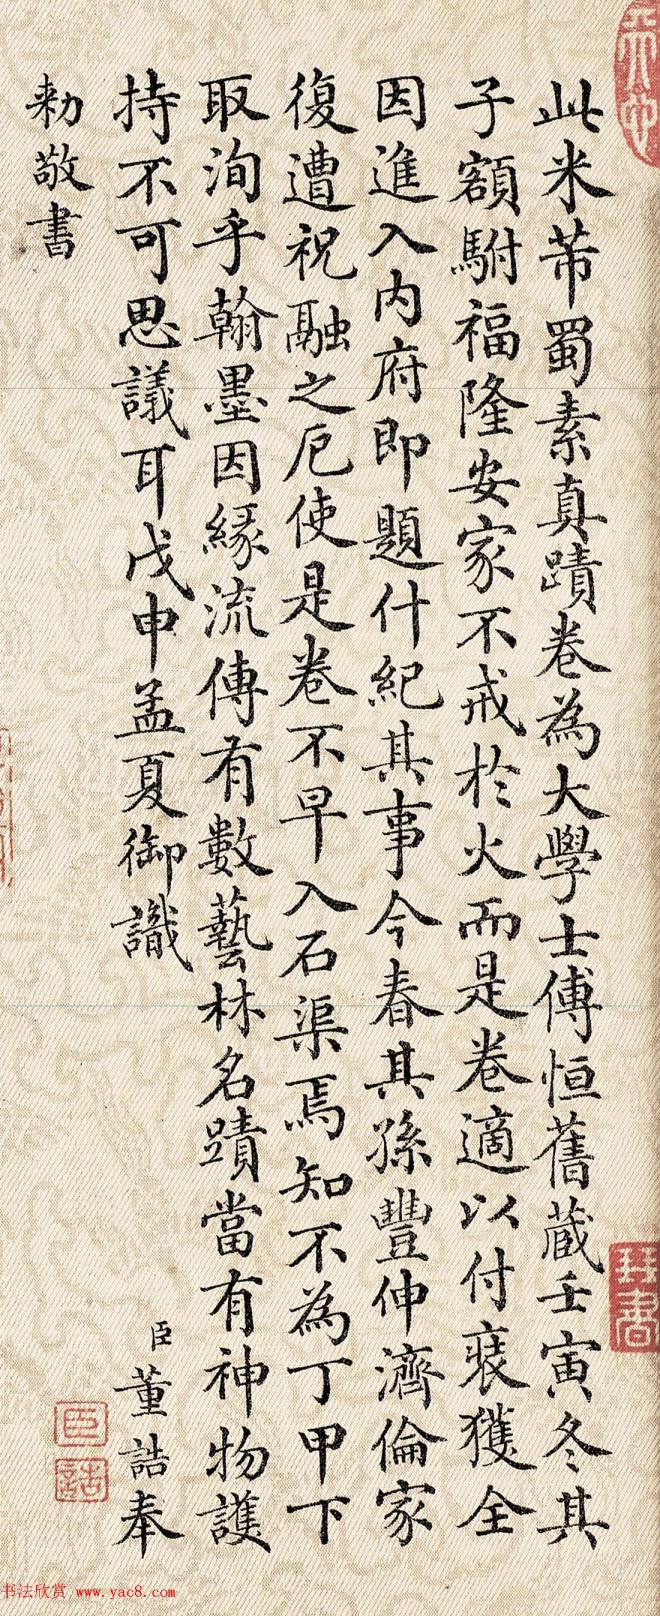 此米芾蜀素真蹟卷為大學士傅恒舊藏壬寅冬其
子額駙福隆安家不戒於火而是卷適以付裝獲全
因進入內府即題什紀其事今春其孫豐伸濟倫家
復遭祝融之厄使是卷不早入石渠焉知不為丁甲下
取洵乎翰墨因緣流傳有數藝林名蹟當有神物護
持不可思議耳戊申孟夏御識
臣董誥奉
勅敬書
臣
誥
琴書
书法欣赏 www.yac8.com